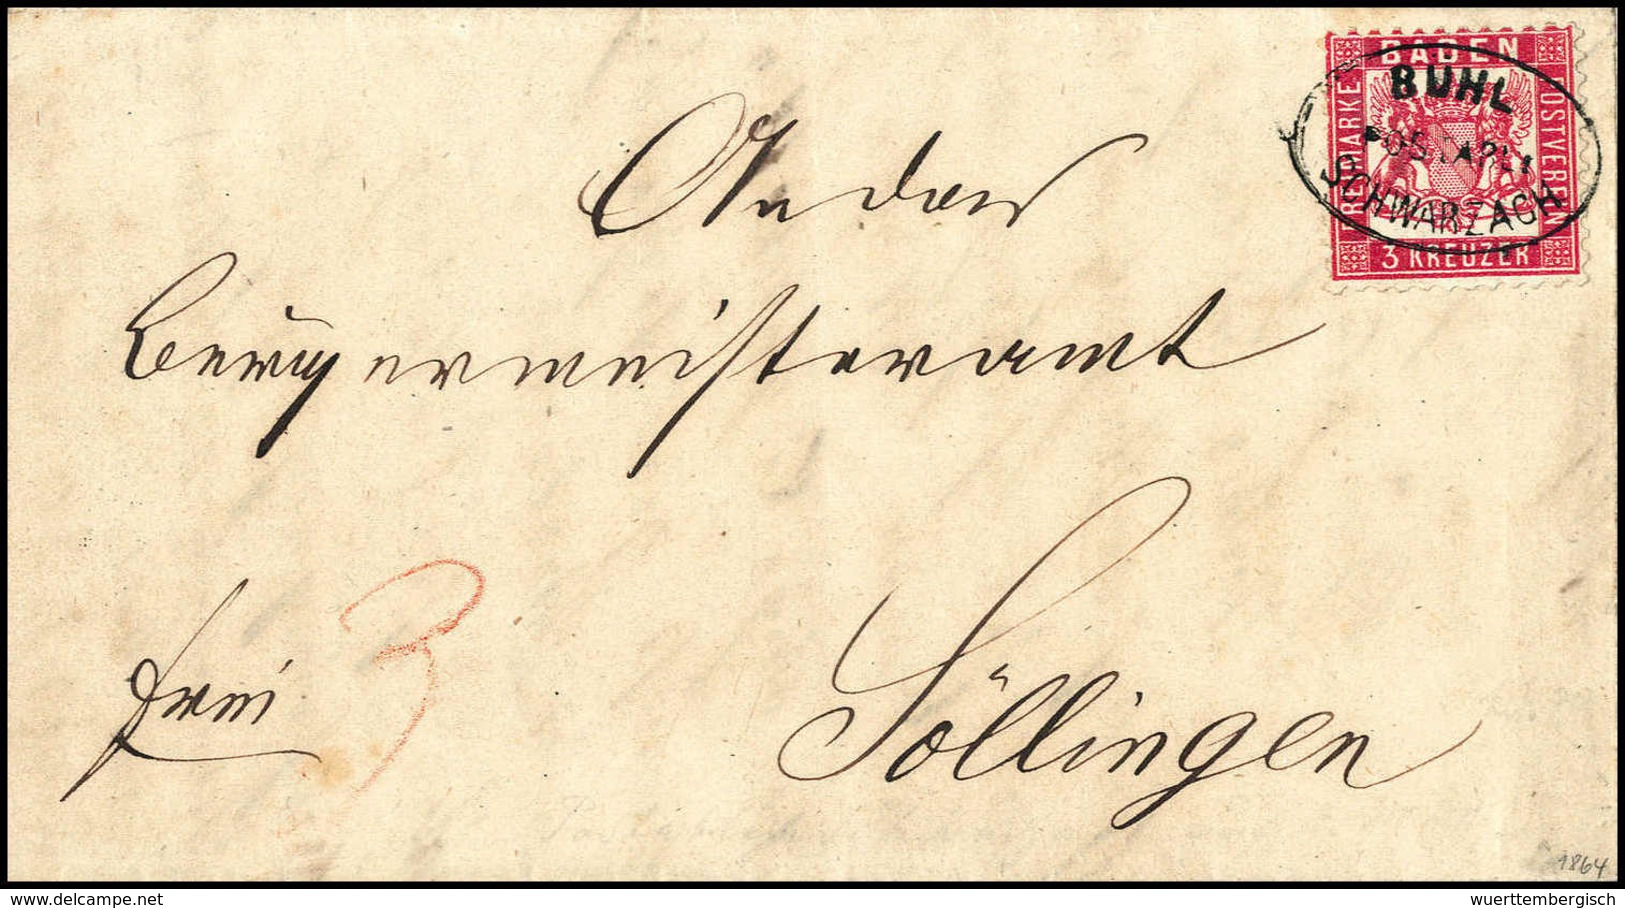 BADEN
FREIMARKE
POSTVEREIN
3 KREUZER
BUHL
POSTABL.
SCHWARZACH
An das
Bürgermeisteramt
frei 3
Söllingen
1864
wuerttembergisch